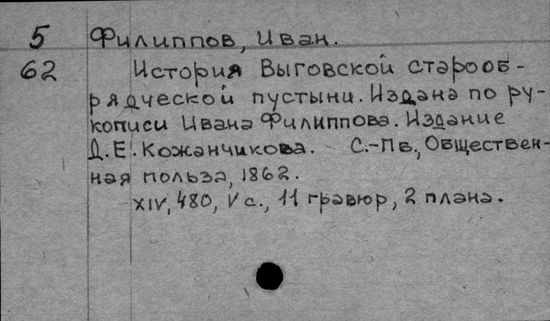 5 Филиппов, Иван.
62 История Выговской старооб-
рядческой пустыни. Издана по ру-
кописи Ивана Филиппова. Издание
Д.Е. Кожанчикова. С.-Пв., Обществен-
ная польза, 1862.
XIV, 480, V с., 11 гравюр, 2 плана.